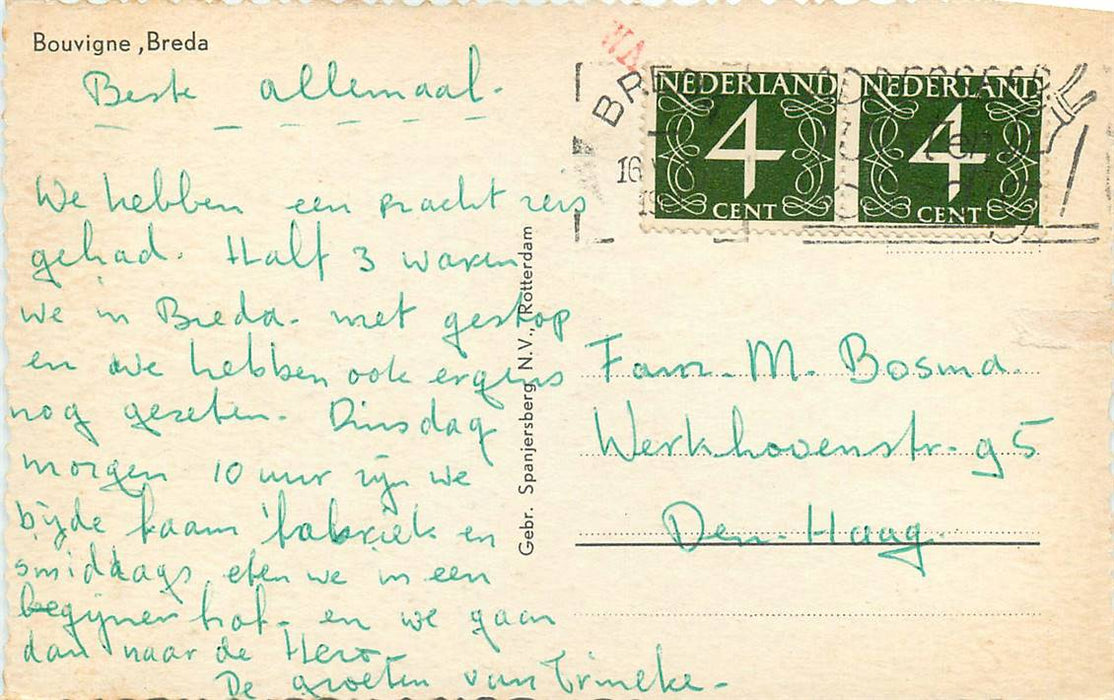 Bouvigne, Breda
Beste allemaal.
We hebben een pracht reis
gehad. Half 3 waren
we in Breda. met gestop
en we hebben ook ergens
nog gezeten. Dinsdag
morgen 10 uur zijn we
bij de fabriek en
smiddags eten we in een
begijnen hof. en we gaan
dan naar de Hero.
De groeten van Trineke.
Gebr. Spanjersberg N.V., Rotterdam
NEDERLAND NEDERLAND
4 4
CENT CENT
16
Fam. M. Bosma.
Werkhovenstr. 95
Den-Haag.